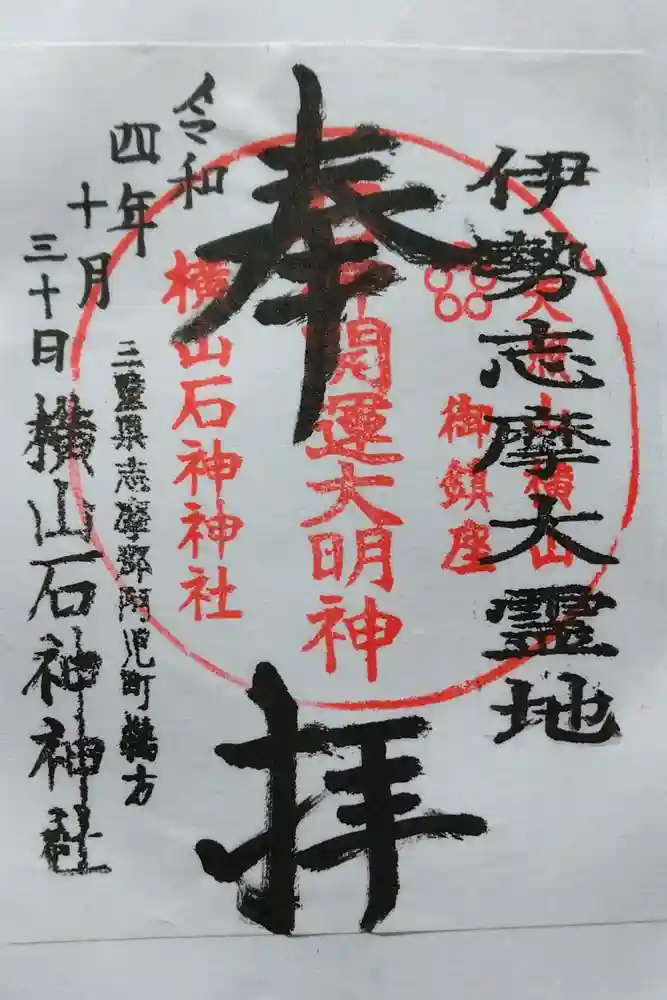 伊勢志摩大霊地
横山
御鎮座
奉拝
開運大明神
横山石神神社
令和
四年
十月
三十日
三重県志摩郡阿児町鵜方
横山石神神社